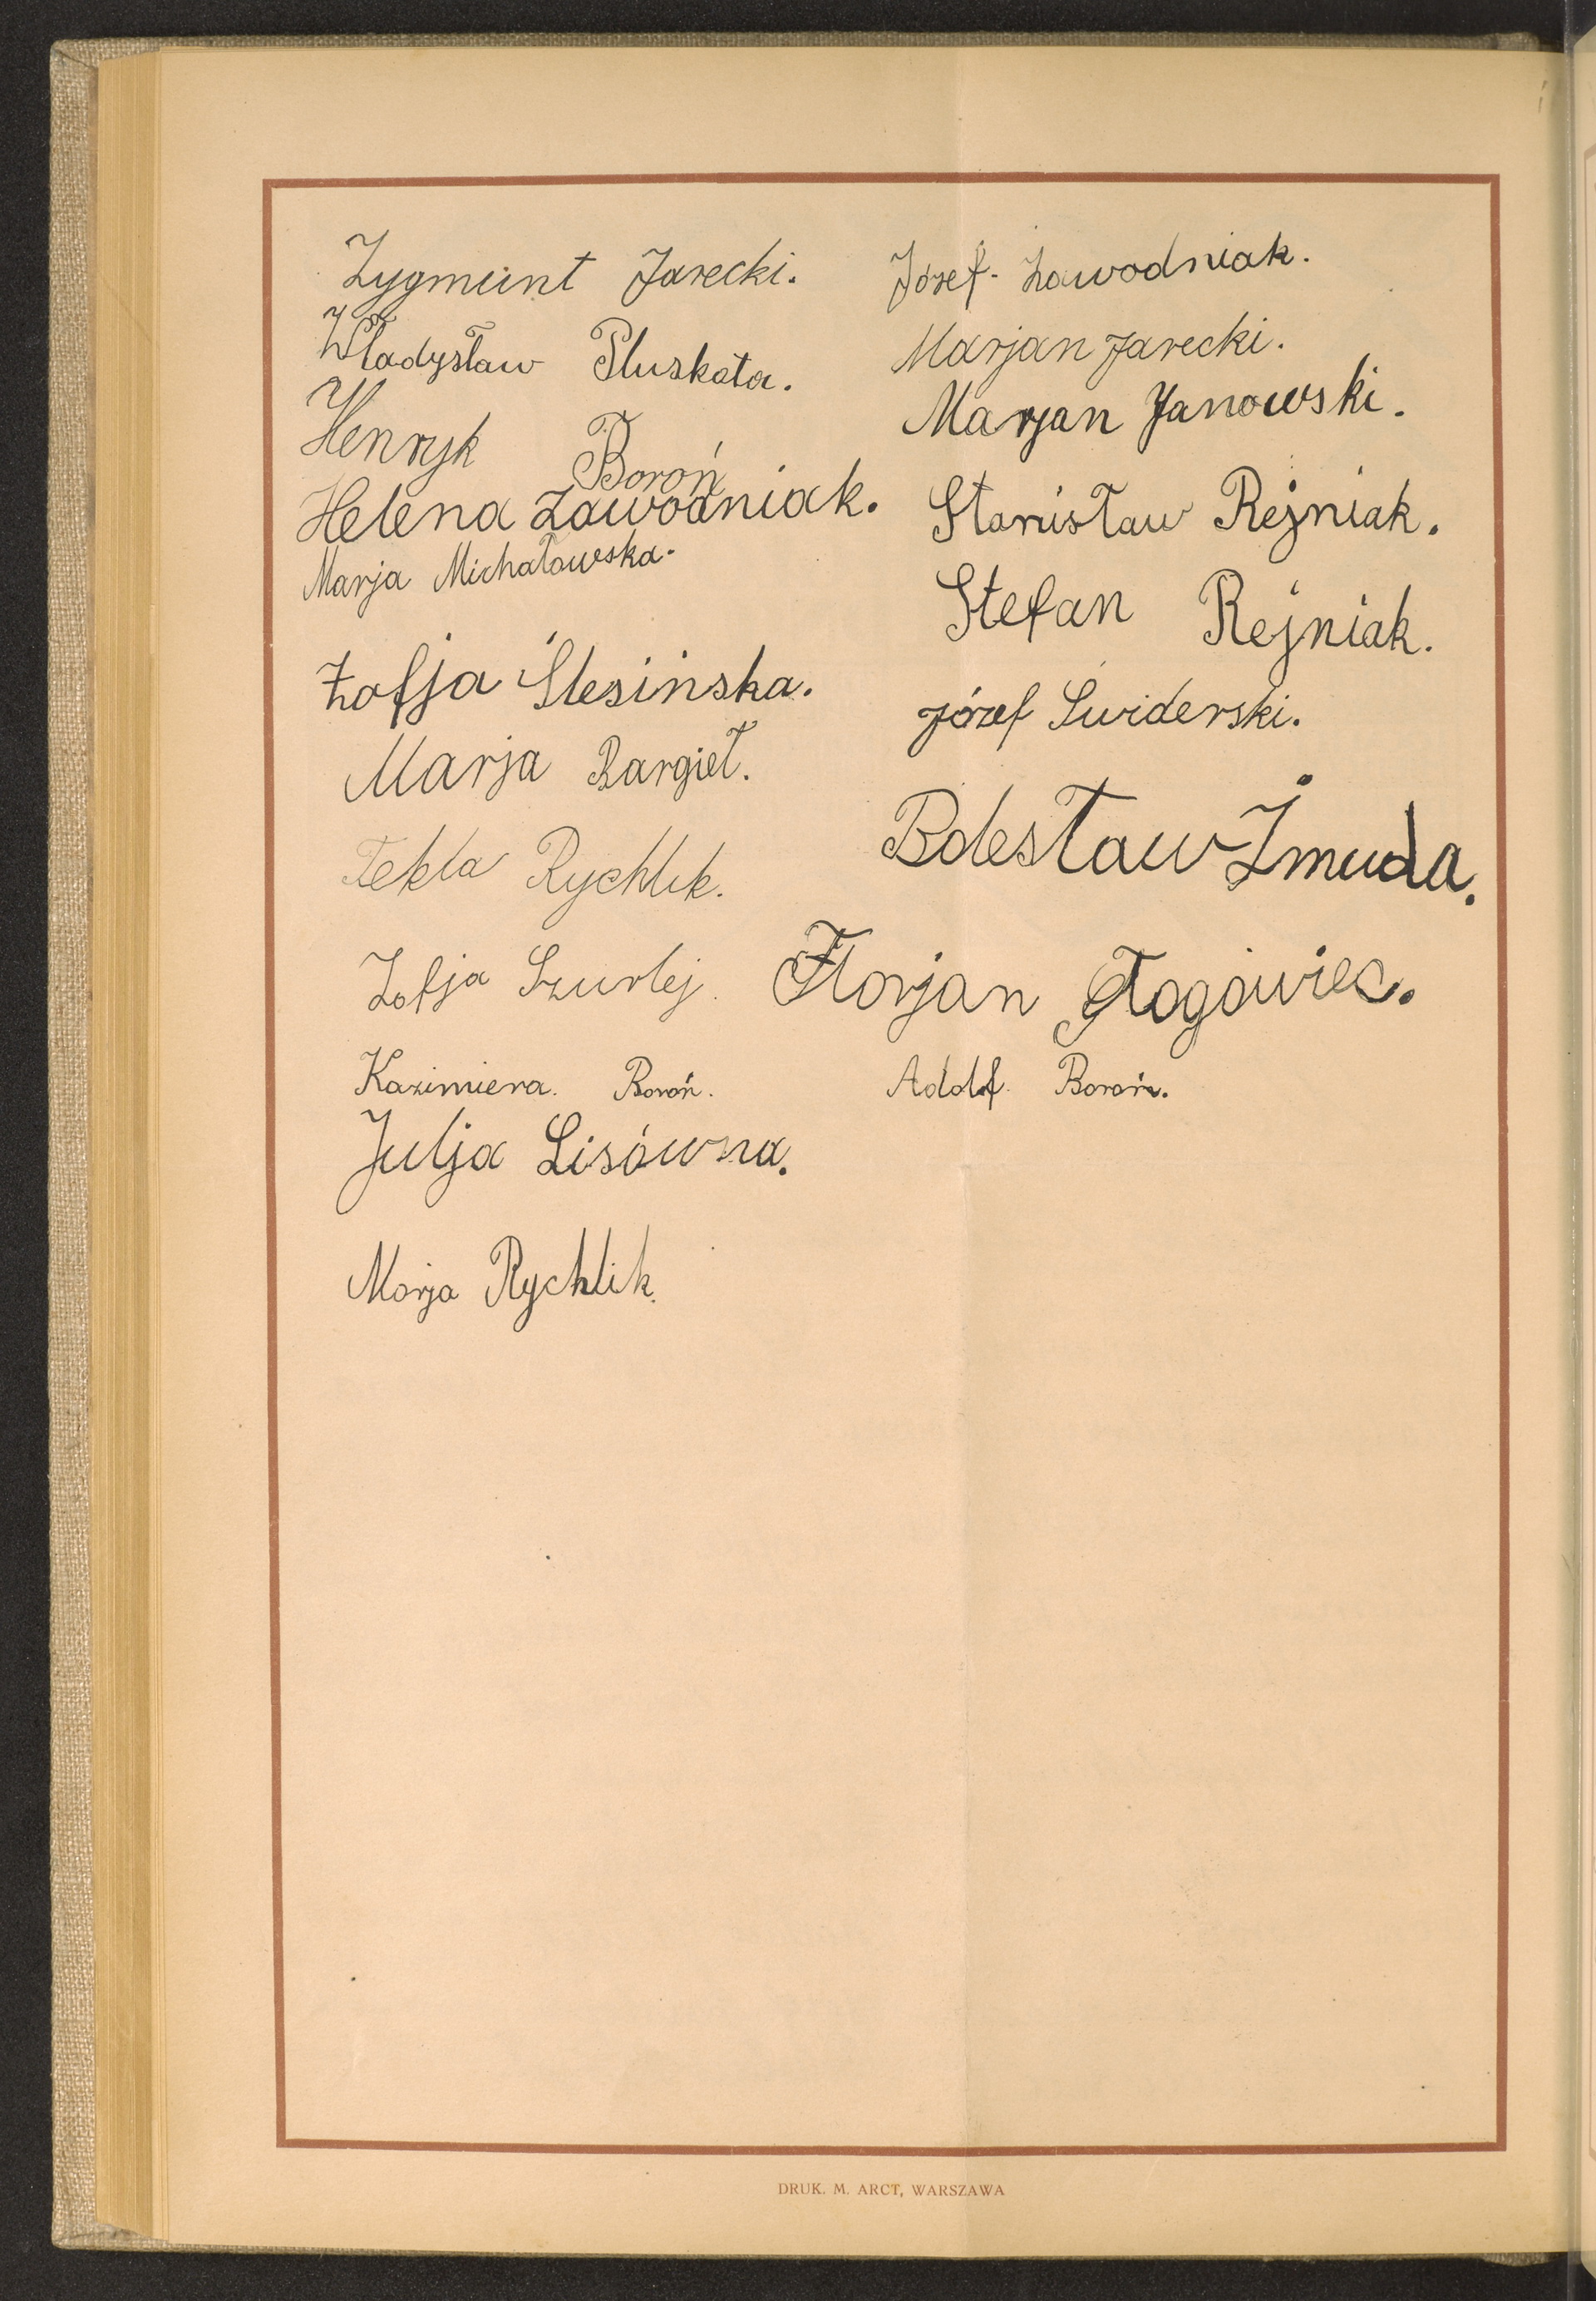 Zygmunt Jarecki.
Władysław Pluskota.
Henryk Boroń
Helena Zawodniak.
Marja Michałowska.
Zofja Ślesińska.
Marja Bargieł.
Tekla Rychlik.
Zofja Szurlej.
Kazimiera. Boroń.
Julja Lisówna.
Marja Rychlik.
Józef. Zawodniak.
Marjan Jarecki.
Marjan Janowski.
Stanisław Rejniak.
Stefan Rejniak.
Józef Świderski.
Bolesław Żmuda.
Florjan
Adolf. Boroń.
DRUK. M. ARCT, WARSZAWA